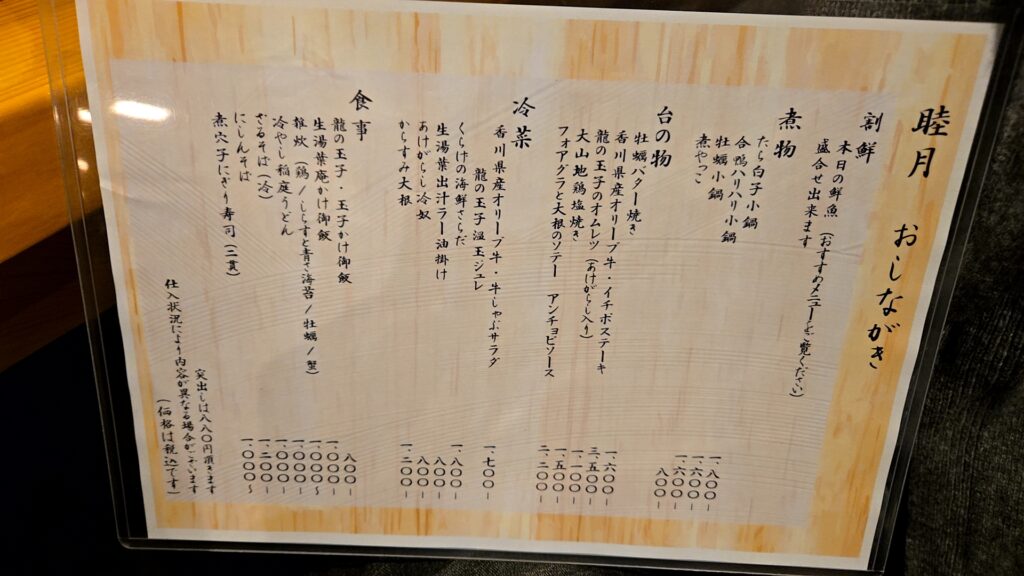 睦月 おしながき
割鮮
本日の鮮魚(おすすめメニューをご覧ください)
盛合せ出来ます
煮物
たら白子小鍋 一、八〇〇ー
合鴨ハリハリ小鍋 一、六〇〇ー
牡蠣小鍋 一、六〇〇ー
煮やっこ 八〇〇ー
台の物
牡蠣バター焼き 一、六〇〇ー
香川県産オリーブ牛・イチボステーキ 三、五〇〇ー
龍の玉子のオムレツ(あけがらし入り) 一、一〇〇ー
大山地鶏塩焼き 一、五〇〇ー
フォアグラと大根のソテー アンチョビソース 二、二〇〇ー
冷菜
香川県産オリーブ牛・牛しゃぶサラダ
龍の玉子温玉ジュレ 一、七〇〇ー
くらげの海鮮さらだ 一、八〇〇ー
生湯葉出汁ラー油掛け 八〇〇ー
あけがらし冷奴 八〇〇ー
からすみ大根 一、二〇〇ー
食事
龍の玉子・玉子かけ御飯 八〇〇ー
生湯葉庵かけ御飯 一、〇〇〇ー
雑炊(鶏/しらすと青さ海苔/牡蠣/蟹) 一、〇〇〇〜
冷やし稲庭うどん 一、〇〇〇ー
ざるそば(冷) 一、〇〇〇ー
にしんそば 一、二〇〇ー
煮穴子にぎり寿司(二貫) 一、〇〇〇〜
突出しは八八〇円頂きます
仕入状況により内容が異なる場合がございます
(価格は税込です)